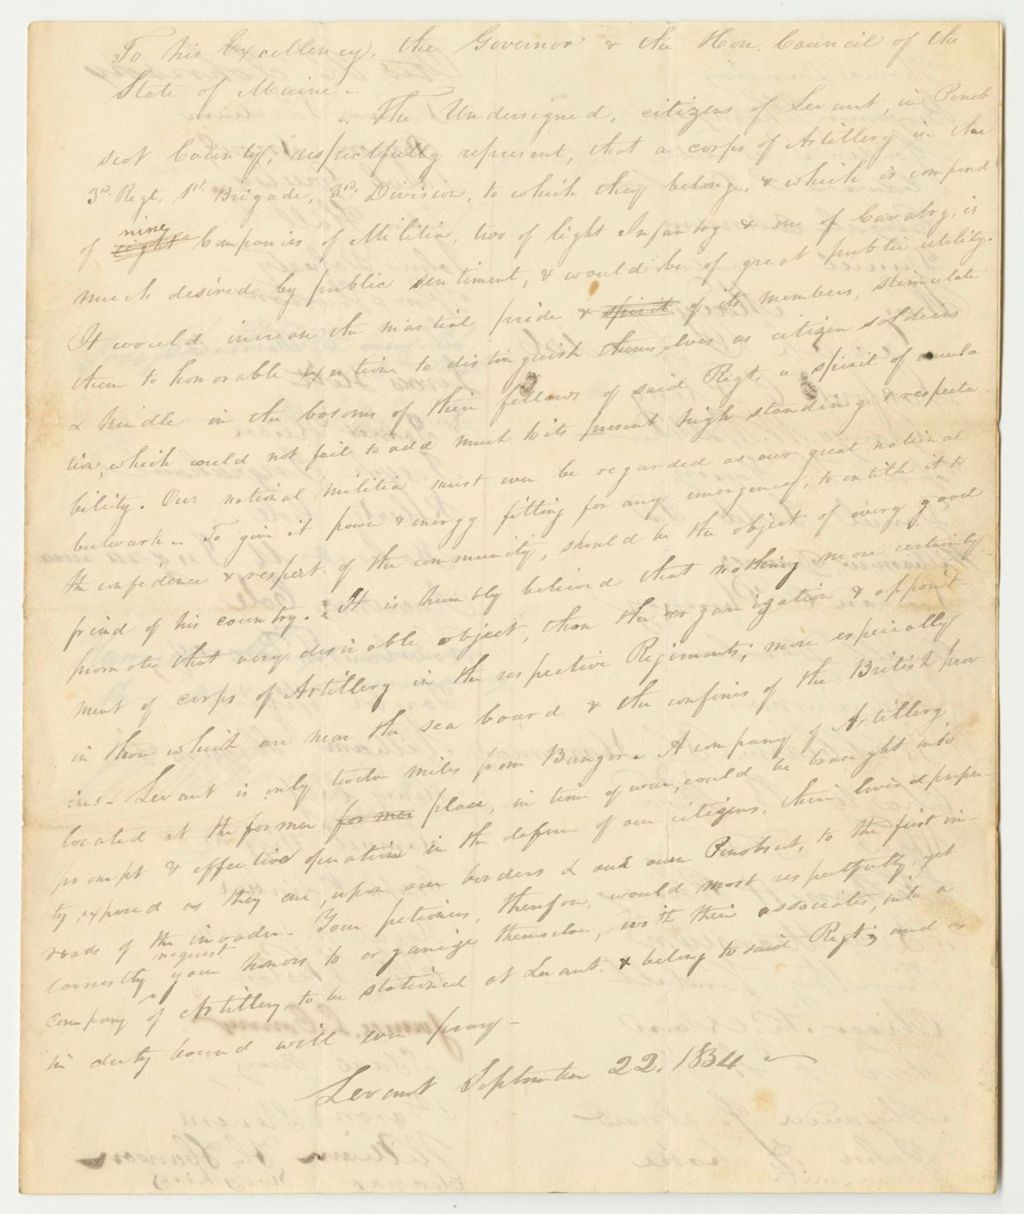 To his Excellency, the Governor & the Hon. Council of the
State of Maine –
The Undersigned, citizens of Levant, in Penob
scot County, respectfully represent, that a corps of Artillery in the
3rd. Regt. 1st. Brigade, 3rd. Division, to which they belong, & which is composed
of eight nine Companies of Militia, two of light Infantry & one of Cavalry, is
much desired by public sentiment, & would be of great public utility.
It would increase the martial pride & spirit of its members, stimulate
them to honorable exertions to distinguish themselves as citizen soldiers
& kindle in the bosoms of their fellows of said Regt. a spirit of emula
tion, which could not fail to add much to its present high standing & respecta-
bility. Our national Militia must ever be regarded as our great national
bulwark – To give it power & energy fitting for any emergency, to entitle it to
the confidence & respect of the community, should be the object of every good
friend of his country. It is humbly believed that nothing more certainly
promotes that very desirable object, than the organization & appoint
ment of corps of Artillery in the respective Regiments; more especially
in those which are near the sea board & the confines of the British prov
inces – Levant is only twelve miles from Bangor. A company of Artillery
located at the former former place, in time of war, could be brought into
prompt & effective operation in the defense of our citizens, their lives & proper
ty, exposed as they are, upon our borders & our Penobscot, to the first in-
roads of the invader. Your petitioners, therefore, would most respectfully, yet
earnestly request your honors to organize themselves, with their associates, into a
company of Artillery, to be stationed at Levant & belong to said Regt; and as
in duty bound will ever pray –
Levant September 22. 1834 –
William H. Hanson